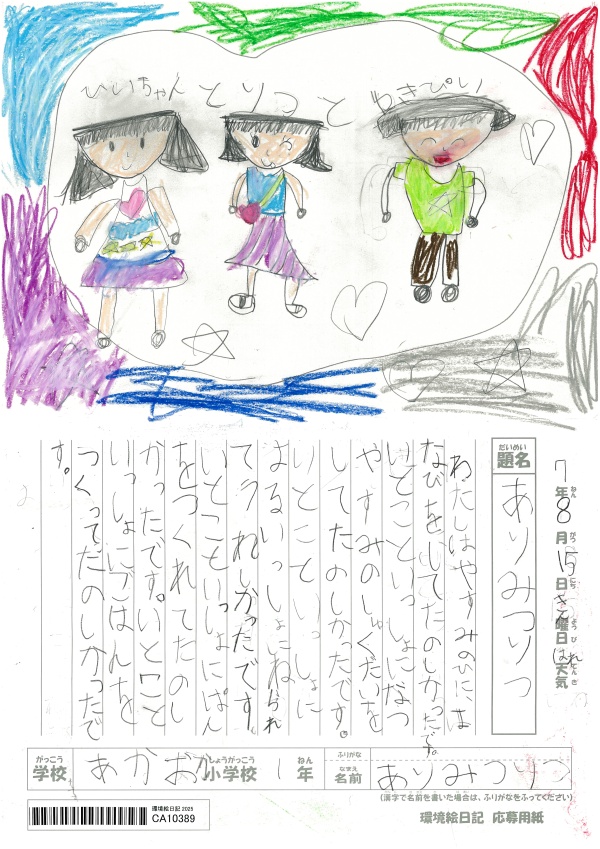 ひいちゃん と りつ と ゆきぴい
7年8月15日きん曜日はれ天気
ねん がつ にち ようび てんき
だいめい
題名
ありみつりつ
わたしはやすみのひには
なびをしてたのしかったです。
いとこといっしょになつ
やすみのしゅくだいを
してたのしかたです。
いとこといっしょに
よるいっしょにねられ
てうれしかったです。
いとこといっしょにぱん
をつくれてたのし
かったです。いとこと
いっしょにごはんを
つくってたのしかったで
す。
がっこう しょうがっこう ねん ふりがな なまえ
学校 あかお小学校 1年 名前 ありみつりつ
(漢字で名前を書いた場合は、ふりがなをふってください)
環境絵日記 2025
CA10389
環境絵日記 応募用紙